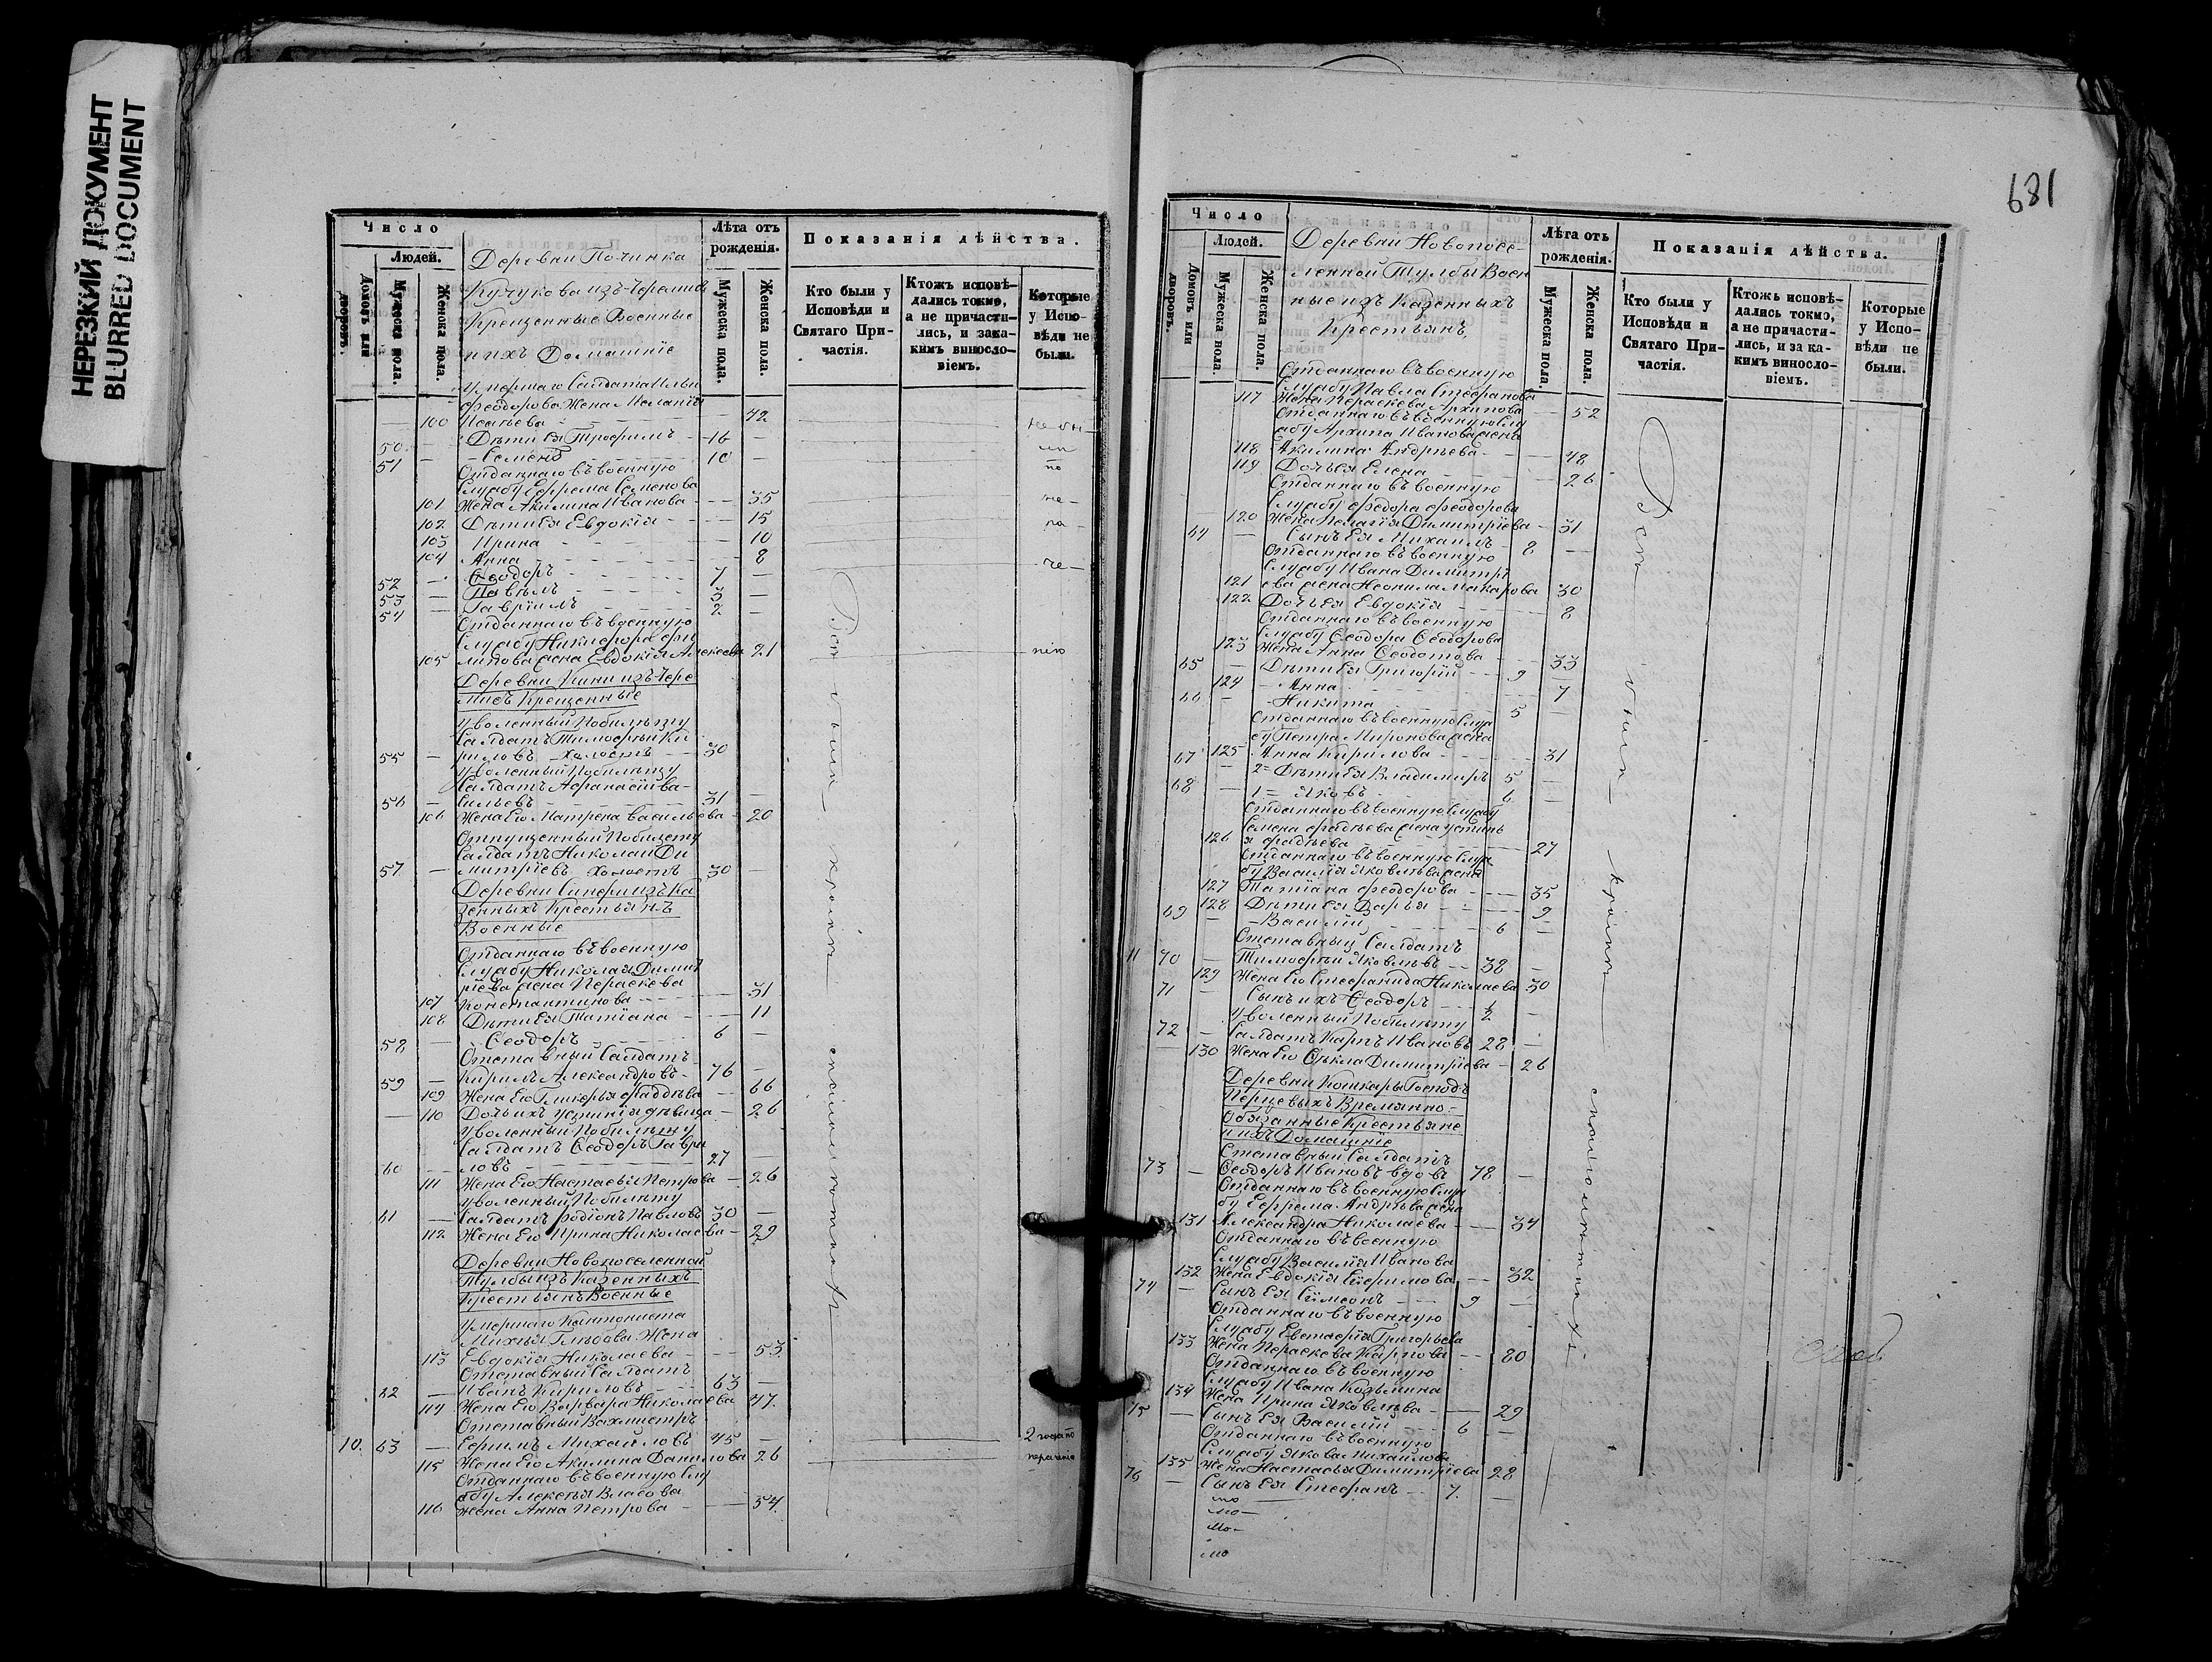 НЕРЕЗКИЙ ДОКУМЕНТ
BLURRED DOCUMENT
Число
Людей.
Домовъ или дворовъ.
Мужеска пола.
Женска пола.
Деревни Починка
Кучукова изъ Черемисъ
Крещенные Военные
и ихъ Домашніе
Лѣта отъ рожденія.
Мужеска пола.
Женска пола.
Показанія дѣйства.
Кто были у Исповѣди и Святаго Причастія.
Ктожъ исповѣдались токмо, а не причастились, и за какимъ винословіемъ.
Которые у Исповѣди не были.
Умершаго Салдата Ильи
Феодорова Жена Меланія
100 Исаіева - 42
50 - Дѣти Ея Трофимъ - 16 -
51 - Семенъ 10 -
Отданнаго въ военную
Службу Ефрема Семенова
101 Жена Акилина Иванова - 35
102 Дѣти Ея Евдокія - 15
103 Ирина - 10
104 Анна - 8
52 - Ѳеодоръ 7 -
53 - Павелъ 3 -
54 - Гавріилъ 2 -
Отданнаго въ военную
Службу Никифора Фи
105 липова жена Евдокія Алексѣева 21
мисъ Крещенные
Уволенный По билѣту
Салдатъ Тимофѣй Ки
55 - риловъ - холостъ - 30
Уволенный По билѣту
Салдатъ Афанасій Ва-
56 - сильевъ - 31 -
106 Жена Его Матрена Васильева - 20
Отпущенный По билету
Салдатъ Николай Ди
57 - митріевъ холостъ 30 -
зенныхъ Крестьянъ
Военные
Отданнаго въ военную
Службу Николая Димит
ріева жена Пераскева
107 Константинова - 31
108 Дѣти Ея Татіана - 11
58 - Ѳеодоръ 6 -
Отставный Салдатъ
59 - Кирилъ Александровъ - 76 -
109 Жена Его Гликерья Фаддѣева - 66
110 Дочь ихъ Устинія дѣвица - 26
Уволенный По билѣту
Салдатъ Ѳеодоръ Гаври
60 - ловъ - 27 -
111 Жена Его Настасья Петрова - 26
Уволенный По билѣту
61 - Салдатъ Родіонъ Павловъ 30 -
112 Жена Его Ирина Николаева - 29
Деревни Новопоселенной
Тулбы изъ Казенныхъ
Крестьянъ Военные
Умершаго Кантониста
Михѣя Глѣбова Жена
113 Евдокія Николаева - 53
Отставный Салдатъ
62 - Иванъ Кириловъ - 63 -
114 Жена Его Варвара Николаева 47
Отставный Вахмистръ
10. 63 - Ефимъ Михайловъ 45 -
115 Жена Его Акилина Данилова 26
Отданнаго въ военную Слу
жбу Алексѣя Власова
116 Жена Анна Петрова - 54
681
Число
Людей.
Домовъ или дворовъ.
Мужеска пола.
Женска пола.
Деревни Новопосе-
ленной Тулбы Воен
ные изъ Казенныхъ
Крестьянъ
Лѣта отъ рожденія.
Мужеска пола.
Женска пола.
Показанія дѣйства.
Кто были у Исповѣди и Святаго Причастія.
Ктожь исповѣдались токмо, а не причастились, и за каким винословіемъ.
Которые у Исповѣди не были.
Отданнаго въ военную
Службу Павла Стефанова
117 Жена Пераскева Архипова - 52
Отданнаго въ военную Слу
жбу Архипа Иванова жена
118 Акилина Андрѣева - 48
119 Дочь Ея Елена - 26
Отданнаго въ военную
Службу Федора Феодорова
120 Жена Пелагія Димитріева - 31
64 - Сынъ Ея Михаилъ - 8 -
Отданнаго въ военную
Службу Ивана Димитрі
121 ева жена Неонила Макарова 30
122 Дочь Ея Евдокія - 8
Отданнаго въ военную
Службу Ѳеодора Ѳеодорова
123 Жена Анна Ѳеодотова - 33
65 - Дѣти Ея Григорій - 9 -
124 - Анна - 7
66 - Никита 5 -
Отданнаго въ военную Служ
бу Петра Миронова жена
125 Анна Кирилова - 31
67 - 2 = Дѣти Ея Владимиръ 5 -
68 - 1 = Яковъ 6 -
Отданнаго въ военную Службу
Семена Фадѣева жена Устинь
126 я Фадѣева - 27
Отданнаго въ военную Служ
бу Василія Яковлева жена
127 Татіана Феодорова - 35
128 Дѣти Ея Дарья - 9
69 - Василій 6 -
Отставный Салдатъ
11 70 - Тимофѣй Яковлевъ - 38 -
129 Жена Его Стефанида Николаева 30
71 - Сынъ ихъ Ѳеодоръ - ½ -
Уволенный По билѣту
72 - Салдатъ Карпъ Ивановъ 28 -
130 Жена Его Ѳекла Димитріева - 26
Деревни Кошкары Господъ
Перцевыхъ Временно-
обязанные Крестьяне
и ихъ Домашніе
Отставный Салдатъ
73 - Ѳеодоръ Ивановъ вдовъ 78 -
Отданнаго въ военную Служ
бу Ефрема Андрѣева жена
131 Александра Николаева - 34
Отданнаго въ военную
Службу Василія Иванова
132 Жена Евдокія Ефимова - 32
74 - Сынъ Ея Симеонъ - 9 -
Отданнаго въ военную
Службу Евстафія Григорьева
133 Жена Пераскева Карпова - 30
Отданнаго въ военную
Службу Ивана Козьмина
134 Жена Ирина Яковлева - 29
75 - Сынъ Ея Василій - 6 -
Отданнаго въ военную
Службу Якова Михайлова
135 Жена Настасья Димитріева 28
76 - Сынъ Ея Стефанъ - 7 -